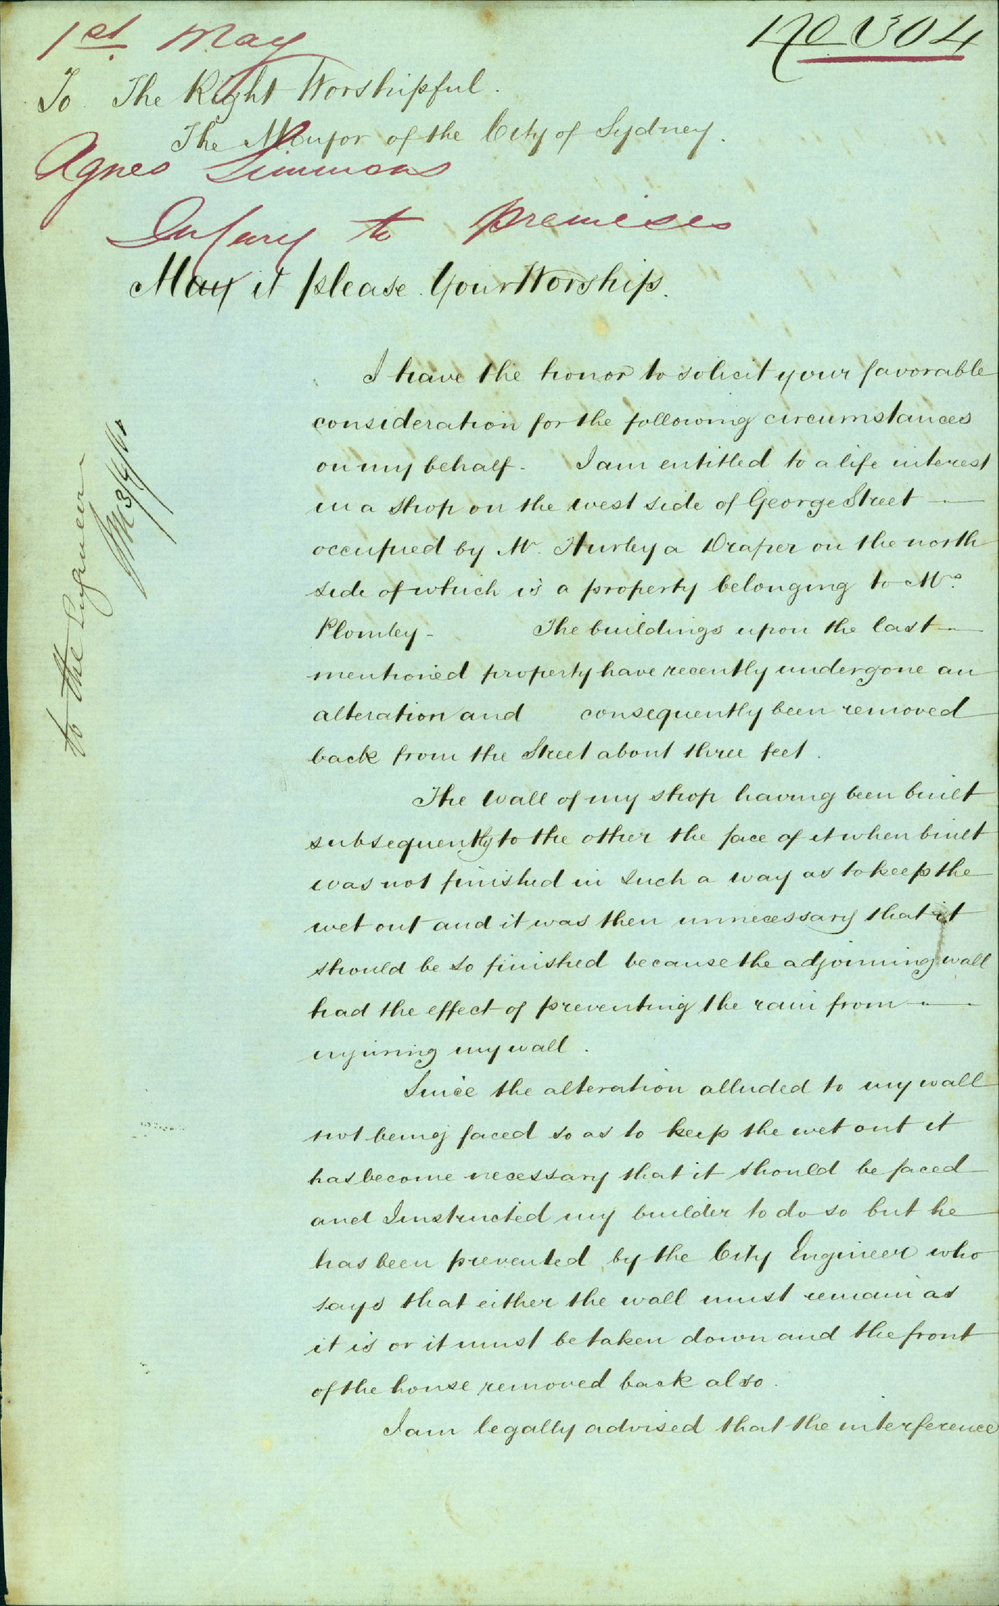 1st May
No 304
To The Right Worshipful.
The Mayor of the City of Sydney.
Agnes Simmons
Injury to premises
May it please Your Worship.
I have the honor to solicit your favorable
consideration for the following circumstances
on my behalf. I am entitled to a life interest
in a shop on the west side of George Street
occupied by Mr. Hurley a Draper on the north
side of which is a property belonging to Mrs
Plomley - The buildings upon the last
mentioned property have recently undergone an
alteration and consequently been removed
back from the Street about three feet.
The wall of my shop having been built
subsequently to the other the face of it when built
was not finished in such a way as to keep the
wet out and it was then unnecessary that it
should be so finished because the adjoining wall
had the effect of preventing the rain from
injuring my wall.
Since the alteration alluded to my wall
not being faced so as to keep the wet out it
has become necessary that it should be faced
and I instructed my builder to do so but he
has been prevented by the City Engineer who
says that either the wall must remain as
it is or it must be taken down and the front
of the house removed back also.
I am legally advised that the interference
to the Engineer